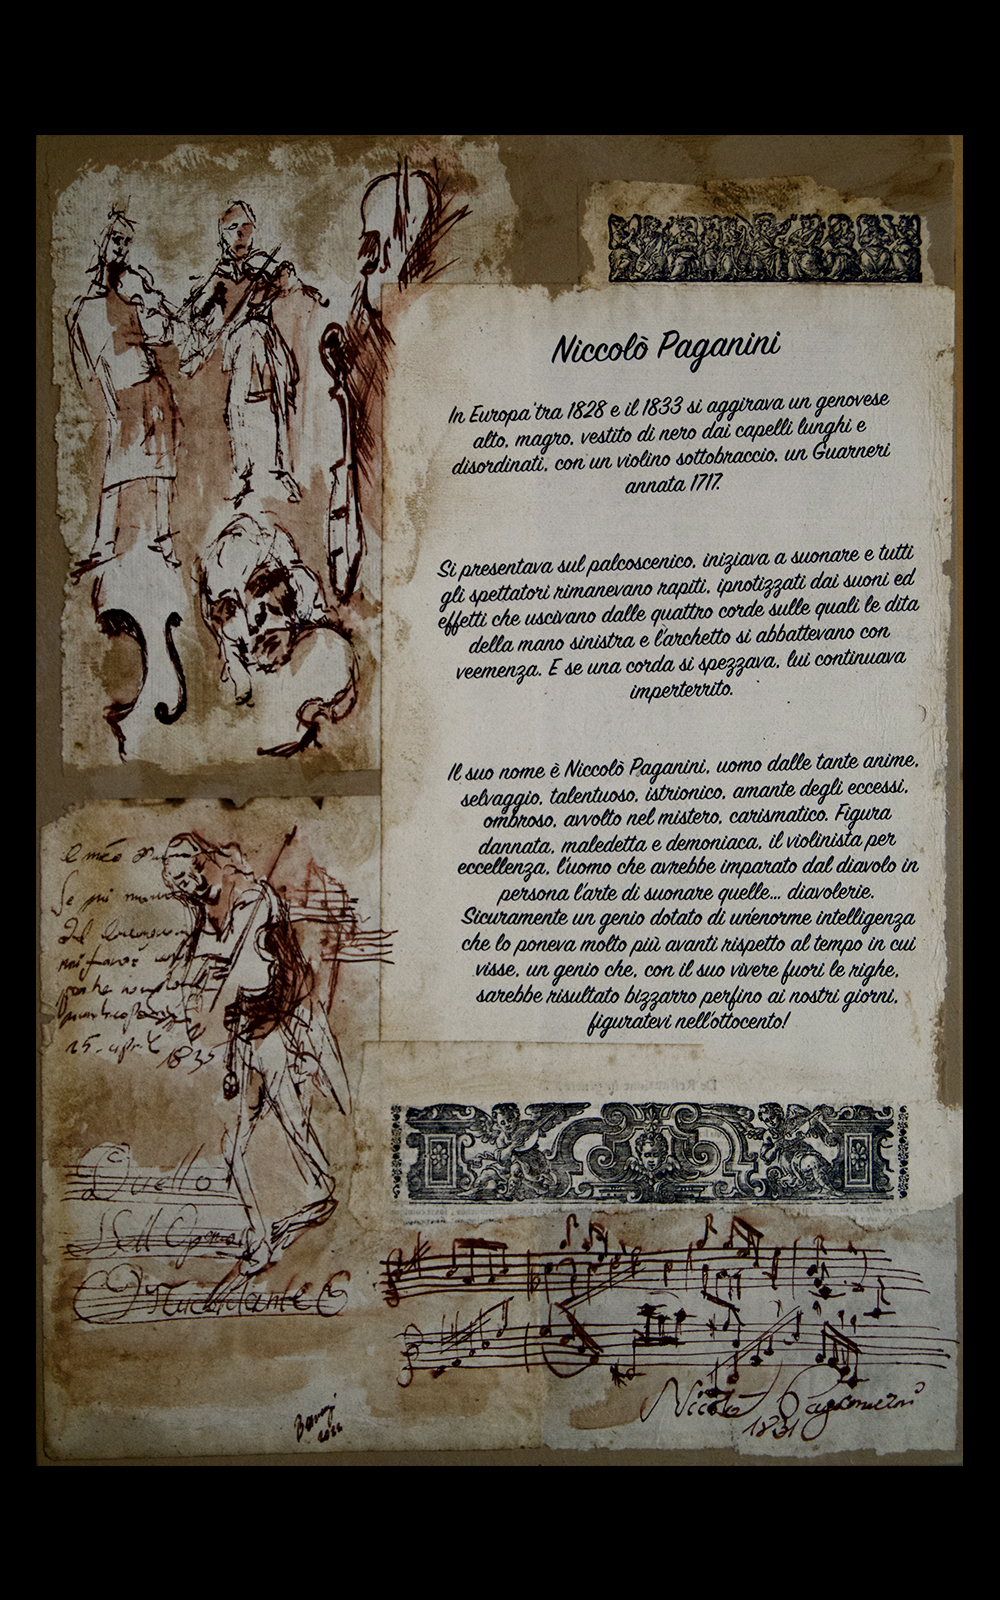 Niccolò Paganini
In Europa tra 1828 e il 1833 si aggirava un genovese
alto, magro, vestito di nero dai capelli lunghi e
disordinati, con un violino sottobraccio, un Guarneri
annata 1717.
Si presentava sul palcoscenico, iniziava a suonare e tutti
gli spettatori rimanevano rapiti, ipnotizzati dai suoni ed
effetti che uscivano dalle quattro corde sulle quali le dita
della mano sinistra e l'archetto si abbattevano con
veemenza. E se una corda si spezzava, lui continuava
imperterrito.
Il suo nome è Niccolò Paganini, uomo dalle tante anime,
selvaggio, talentuoso, istrionico, amante degli eccessi,
ombroso, avvolto nel mistero, carismatico. Figura
dannata, maledetta e demoniaca, il violinista per
eccellenza, l'uomo che avrebbe imparato dal diavolo in
persona l'arte di suonare quelle... diavolerie.
Sicuramente un genio dotato di un'enorme intelligenza
che lo poneva molto più avanti rispetto al tempo in cui
visse, un genio che, con il suo vivere fuori le righe,
sarebbe risultato bizzarro perfino ai nostri giorni,
figuratevi nell'ottocento!
Se
15
1835
Duello
Nicolò Paganini
1831